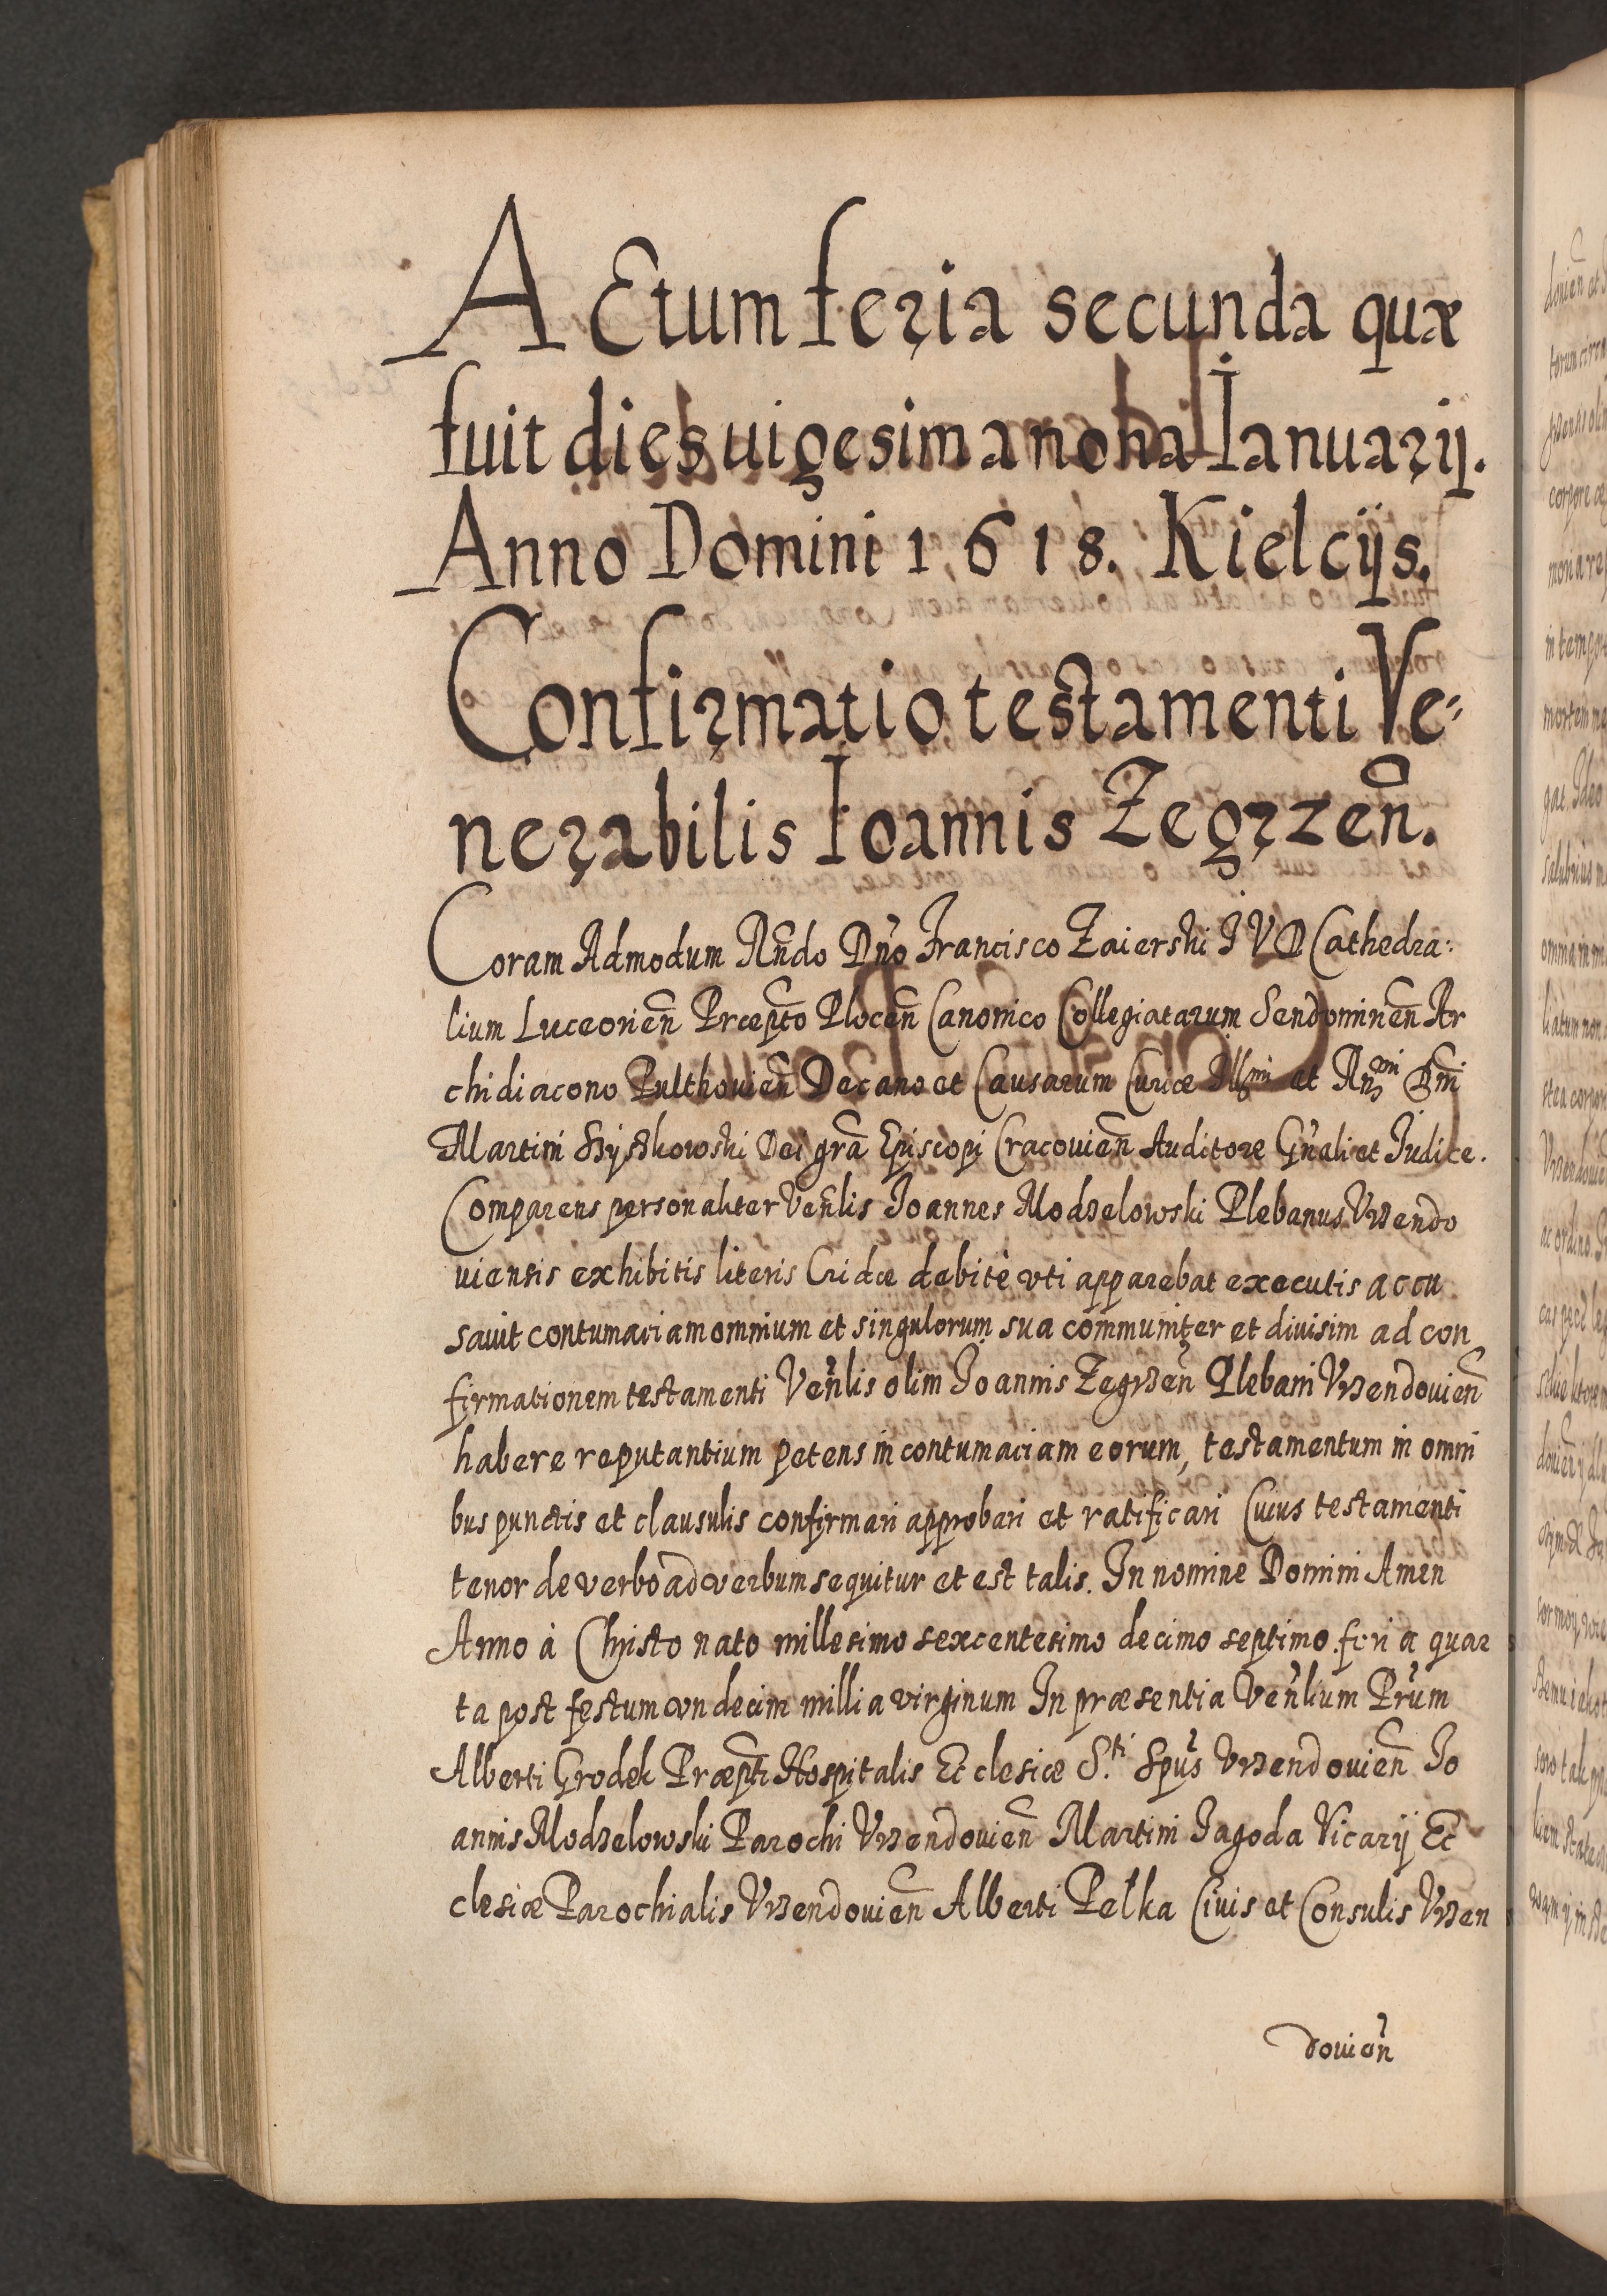 AEtum feria secunda quæ
fuit dies uigesima nona Ianuarij.
Anno Domini 1618. Kielcijs.
Confirmatio testamenti Ve-
nerabilis Ioannis Zegrzen̄.
Coram Admodum Rn̄do Dn̄o Francisco Zaierski I V D Cathedra:
lium Luceorien̄ Præpt̄o Plocen̄ Canonico Collegiatarum Sendomirien̄ Ar
chidiacono Pulthouien̄ Decano et Causarum Curiæ Illmi et Rn̄mi Dn̄i
Martini Szyszkowski Dei gr̄a Episcopi Cracouien̄ Auditore Gn̄ali et Iudice.
Comparens personaliter Ven̄lis Ioannes Modzelowski Plebanus Vrzendo
uiensis exhibitis literis Cridæ debitè vti apparebat executis accu
sauit contumaciam omnium et singulorum sua communiter et diuisim ad con
firmationem testamenti Ven̄lis olim Ioannis Zegrzen̄ Plebani Vrzendouien̄
habere reputantium petens in contumaciam eorum, testamentum in omni
bus punctis et clausulis confirmari approbari et ratificari Cuius testamenti
tenor de verbo ad verbum sequitur et est talis. In nomine Domini Amen
Anno à Christo nato millesimo sexcentesimo decimo septimo feria quar
ta post festum vndecim millia virginum In præsentia Ven̄lium Pr̄um
Alberti Grodek Præpt̄i Hospitalis Ecclesiæ S.ti Spūs Vrzendouien̄ Io
annis Modzelowski Parochi Vrzendouien̄ Martini Jagoda Vicarij Ec
clesiæ Parochialis Vrzendouien̄ Alberti Pełka Ciuis et Consulis Vrzen
douien̄